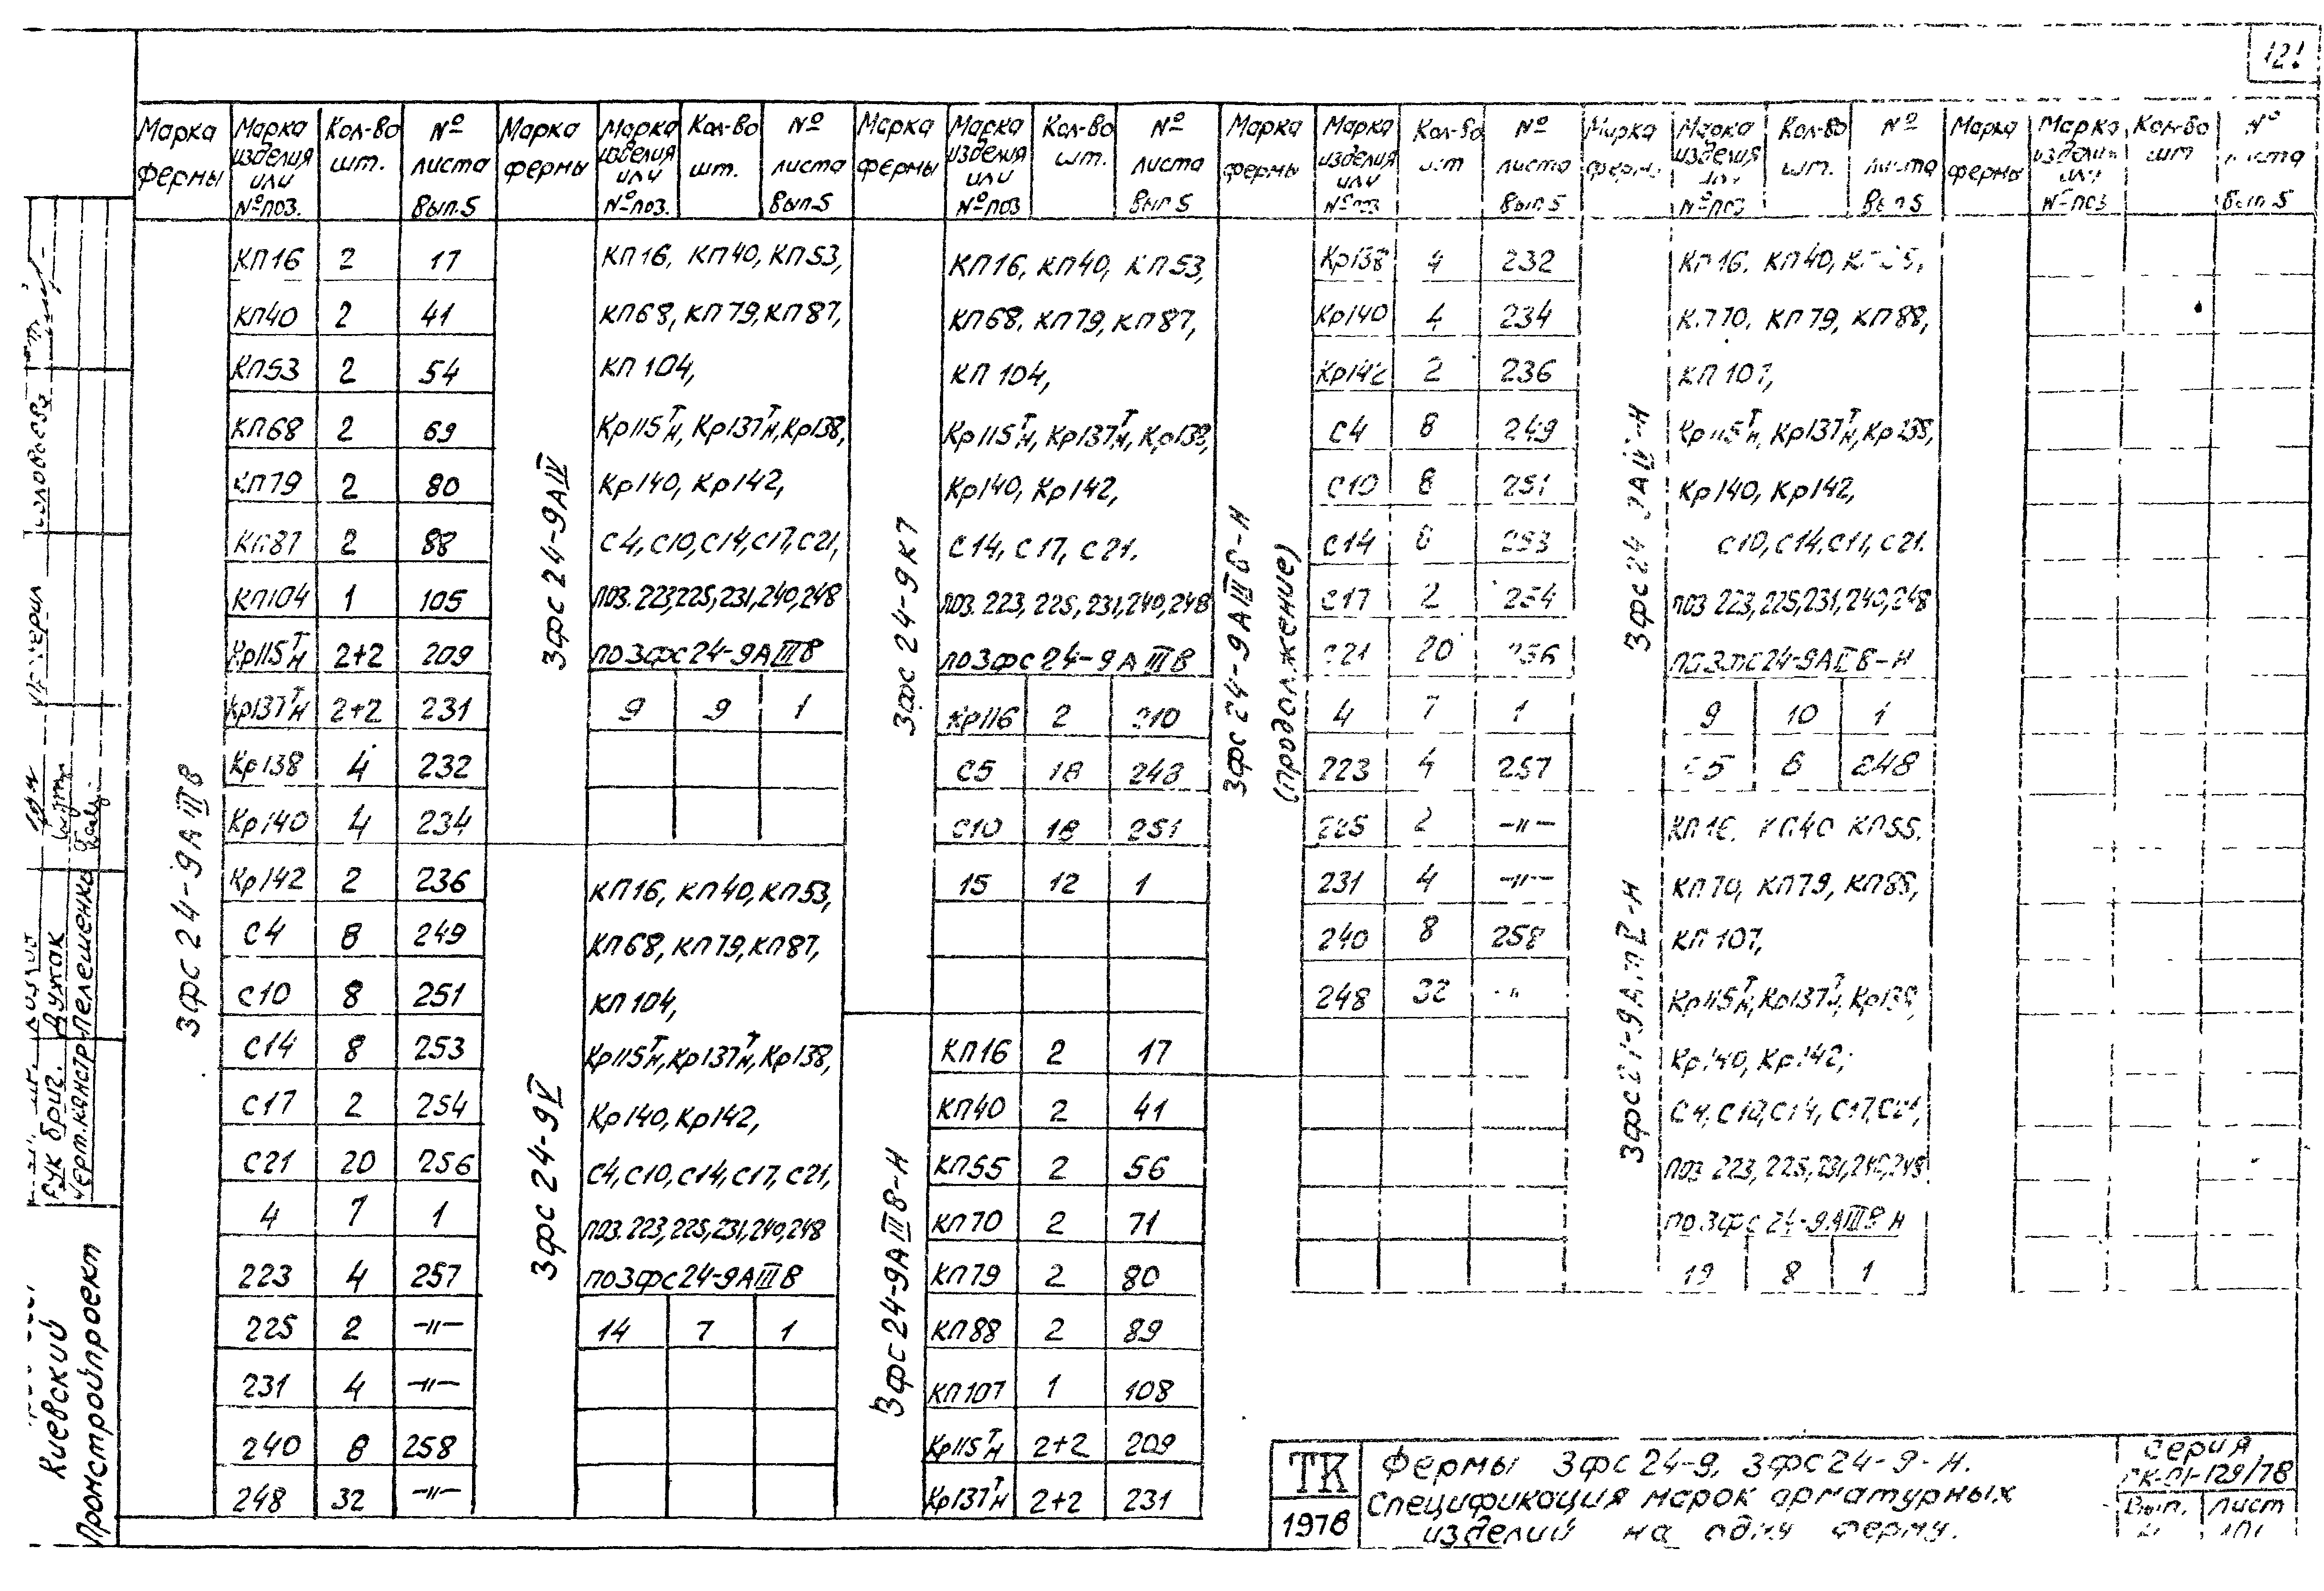 121
Марка фермы | Марка изделия или № поз. | Кол-во шт. | № листа Вып.5 | Марка фермы | Марка изделия или № поз. | Кол-во шт. | № листа Вып.5 | Марка фермы | Марка изделия или № поз | Кол-во шт. | № листа Вып 5 | Марка фермы | Марка изделия или № поз | Кол-во шт | № листа Вып 5 | Марка фермы | Марка изделия или № поз | Кол-во шт. | № листа Вып 5 | Марка фермы | Марка изделия или № поз | Кол-во шт | № листа Вып 5
3фс 24-9АIIIв
КП16 2 17
КП40 2 41
КП53 2 54
КП68 2 69
КП79 2 80
КП87 2 88
КП104 1 105
Кр115Тн 2+2 209
Кр137Тн 2+2 231
Кр138 4 232
Кр140 4 234
Кр142 2 236
С4 8 249
С10 8 251
С14 8 253
С17 2 254
С21 20 256
4 7 1
223 4 257
225 2 -"-
231 4 -"-
240 8 258
248 32 -"-
3фс 24-9АIV
КП16, КП40, КП53,
КП68, КП79, КП87,
КП 104,
Кр115Тн, Кр137Тн, Кр138,
Кр140, Кр142,
С4, С10, С14, С17, С21,
поз. 223, 225, 231, 240, 248
по 3фс 24-9АIIIв
9 9 1
3фс 24-9V
КП16, КП40, КП53,
КП68, КП79, КП87,
КП 104,
Кр115Тн, Кр137Тн, Кр138,
Кр140, Кр142,
С4, С10, С14, С17, С21,
поз. 223, 225, 231, 240, 248
по 3фс 24-9АIIIв
14 7 1
3фс 24-9К7
КП16, КП40, КП53,
КП68, КП79, КП87,
КП 104,
Кр115Тн, Кр137Тн, Кр138,
Кр140, Кр142,
С14, С17, С21.
поз. 223, 225, 231, 240, 248
по 3фс 24-9АIIIв
Кр116 2 210
С5 18 248
С10 18 251
15 12 1
3фс 24-9АIIIв-Н
КП16 2 17
КП40 2 41
КП55 2 56
КП70 2 71
КП79 2 80
КП88 2 89
КП107 1 108
Кр115Тн 2+2 209
Кр137Тн 2+2 231
3фс 24-9АIIIв-Н
(продолжение)
Кр138 4 232
Кр140 4 234
Кр142 2 236
С4 8 249
С10 8 251
С14 8 253
С17 2 254
С21 20 256
4 7 1
223 4 257
225 2 -"-
231 4 -"-
240 8 258
248 32 "
3фс 24
КП16, КП40,
КП70, КП79, КП88,
КП 107,
Кр115Тн, Кр137Тн, Кр138,
Кр140, Кр142,
С10, С14, С17, С21.
поз 223, 225, 231, 240, 248
9 10 1
С5 6 248
КП16, КП40 КП55.
КП70, КП79, КП88,
КП 107,
Кр115Тн, Кр137Тн, Кр138,
Кр140, Кр142,
С4, С10, С14, С17, С21,
поз 223, 225, 231, 240, 248
по 3фс 24-9АIIIв Н
19 8 1
Рук бриг. Дужак
Черт. констр. Пелешенко
Киевский
Промстройпроект
ТК
1978
Фермы 3фс 24-9, 3фс 24-9-Н.
Спецификация марок арматурных
изделий на одну ферму.
Серия
ПК-01-129/78
Вып. Лист